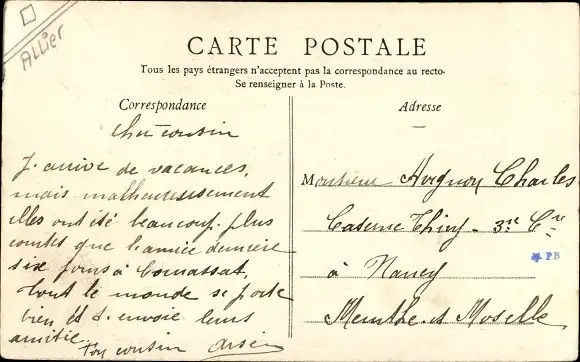 Allier
CARTE POSTALE
Tous les pays étrangers n'acceptent pas la correspondance au recto-
Se renseigner à la Poste.
Correspondance
Cher cousin
J. arrive de vacances,
mais malheureusement
elles ont été beaucoup plus
courtes que l'année dernière
six jours à
tout le monde se porte
bien et t. envoie leurs
amitié
Ton cousin
Adresse
Monsieur Charles
Caserne Thiry - 3e Cie
à Nancy
Meurthe et Moselle
PB